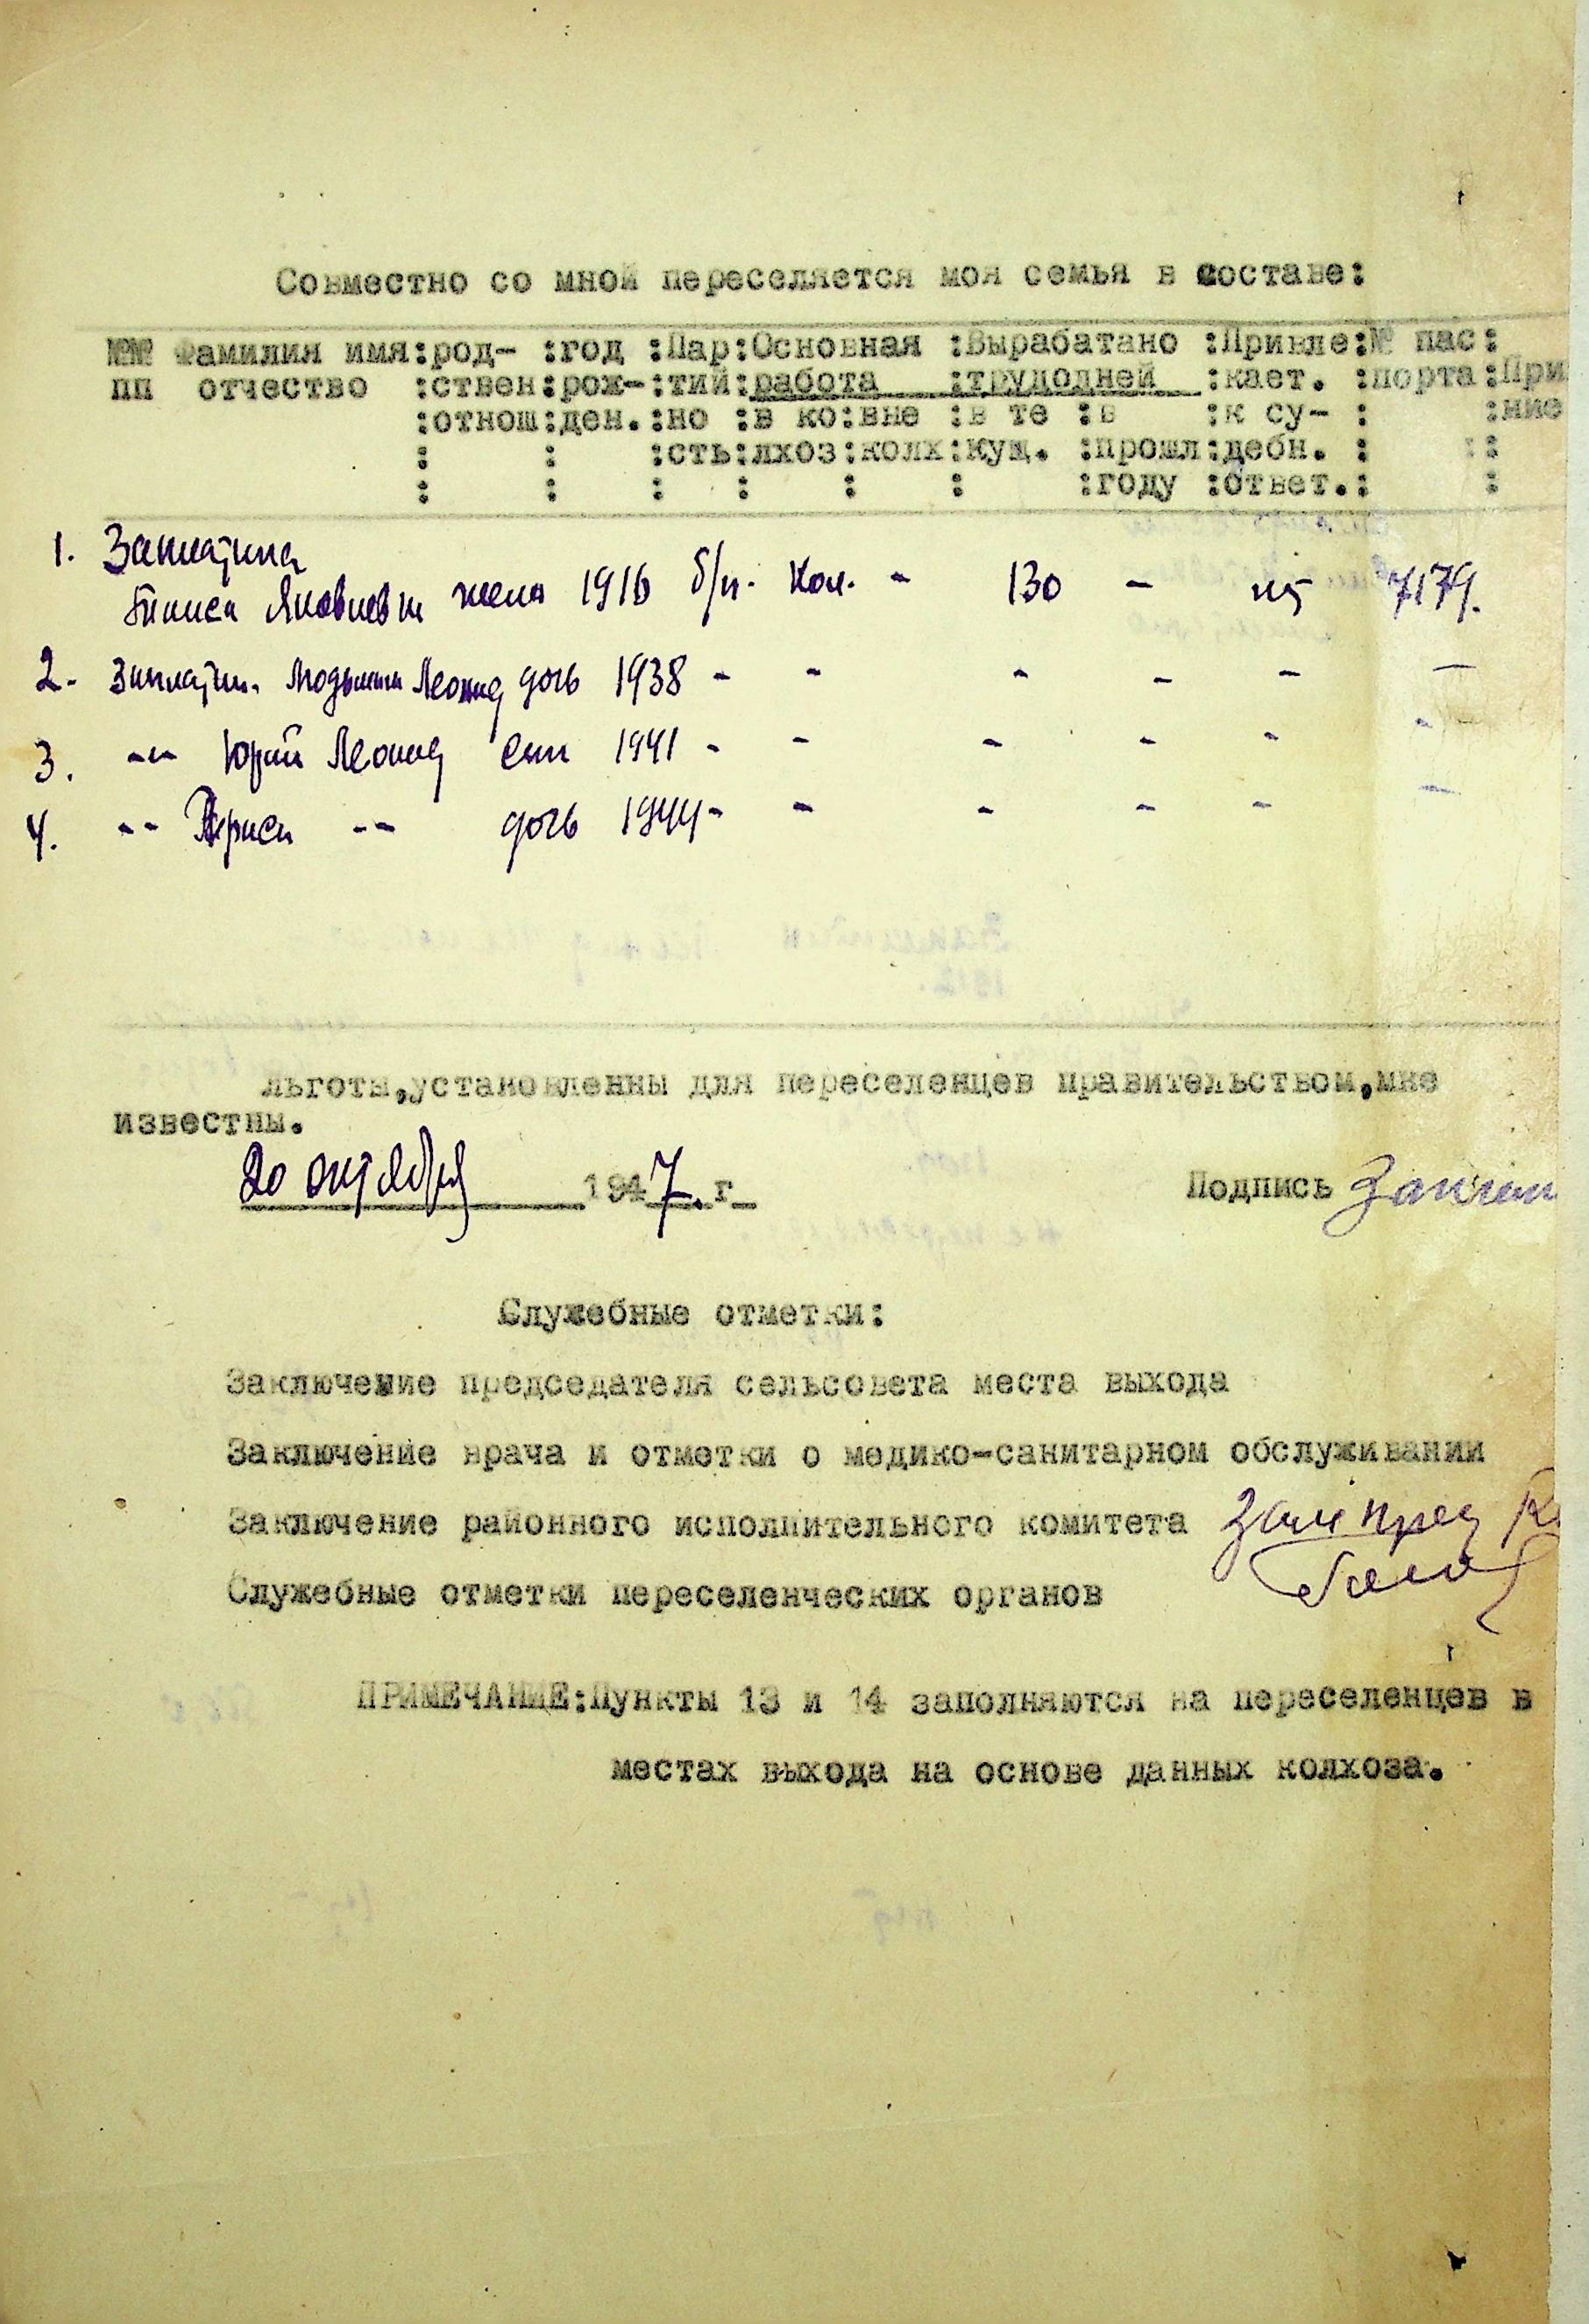 Совместно со мной переселяется моя семья в составе:
№№ Фамилия имя:род- :год :Пар:Основная :Выработано :Привле:№ пас:
пп отчество :ствен:рож-:тий:работа :трудодней :кает. :порта:При
:отнош:ден.:но :в ко:вне :в те :в :к су- : :ние
: : :сть:лхоз:колх:кущ. :прошл:дебн. : :
: : : : : : :году :ответ.: :
1. Заплатина
Яковлевн жена 1916 б/п. Кол. - 130 - 7179.
2. Заплатин. Людмила Леонид дочь 1938 - - - - - -
3. -"- Юрий Леонид сын 1941 - - - - - -
4. -"- -"- дочь 1944 - - - - - -
Льготы,установленны для переселенцев правительством,мне
известны.
20 октября 1947. г
Подпись
Служебные отметки:
Заключение председателя сельсовета места выхода
Заключение врача и отметки о медико-санитарном обслуживании
Заключение районного исполнительного комитета Зам пред
Служебные отметки переселенческих органов
ПРИМЕЧАНИЕ:Пункты 13 и 14 заполняются на переселенцев в
местах выхода на основе данных колхоза.